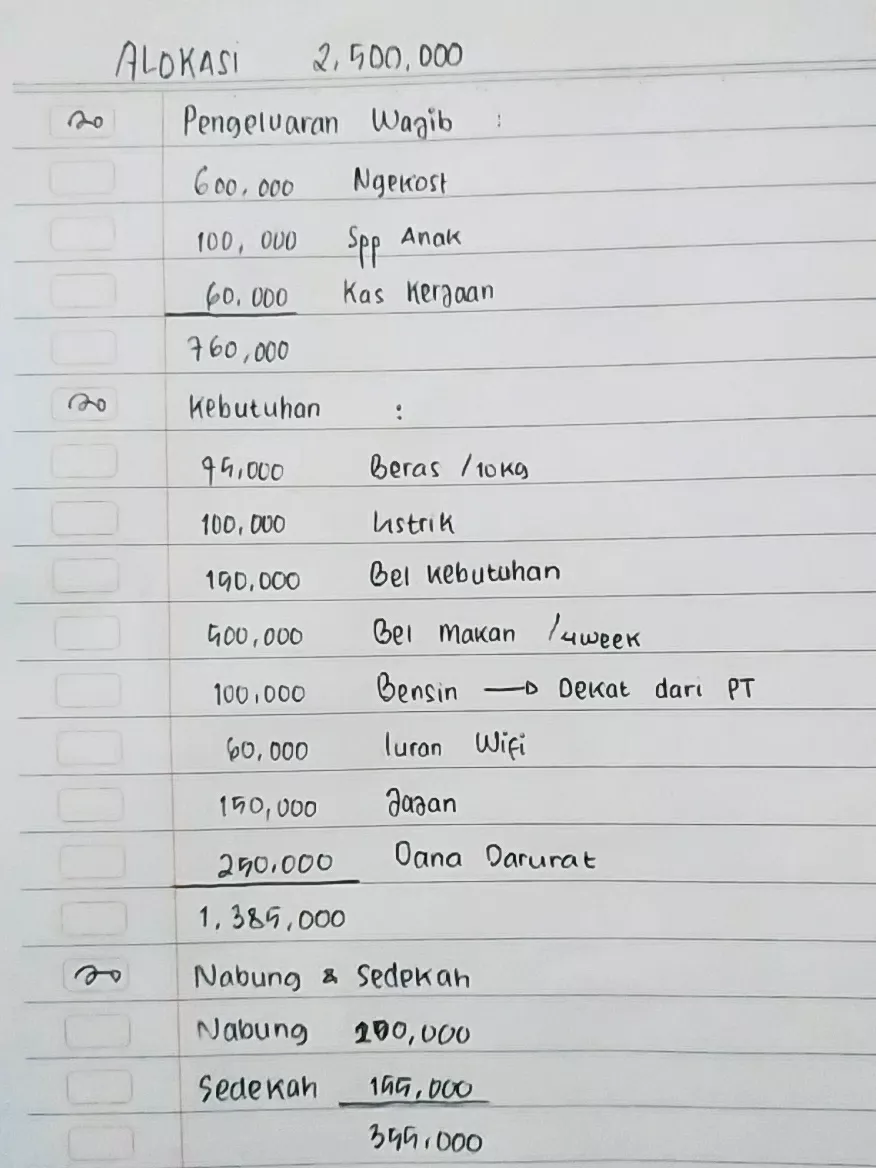 ALOKASI 2,500,000
Pengeluaran Wajib :
600,000 Ngekost
100,000 Spp Anak
60,000 Kas Kerjaan
760,000
Kebutuhan :
75,000 Beras /10kg
100,000 Listrik
150,000 Bel kebutuhan
500,000 Bel Makan /4week
100,000 Bensin → Dekat dari PT
60,000 Iuran Wifi
150,000 Jajan
250,000 Dana Darurat
1,385,000
Nabung & Sedekah
Nabung 200,000
Sedekah 155,000
355,000